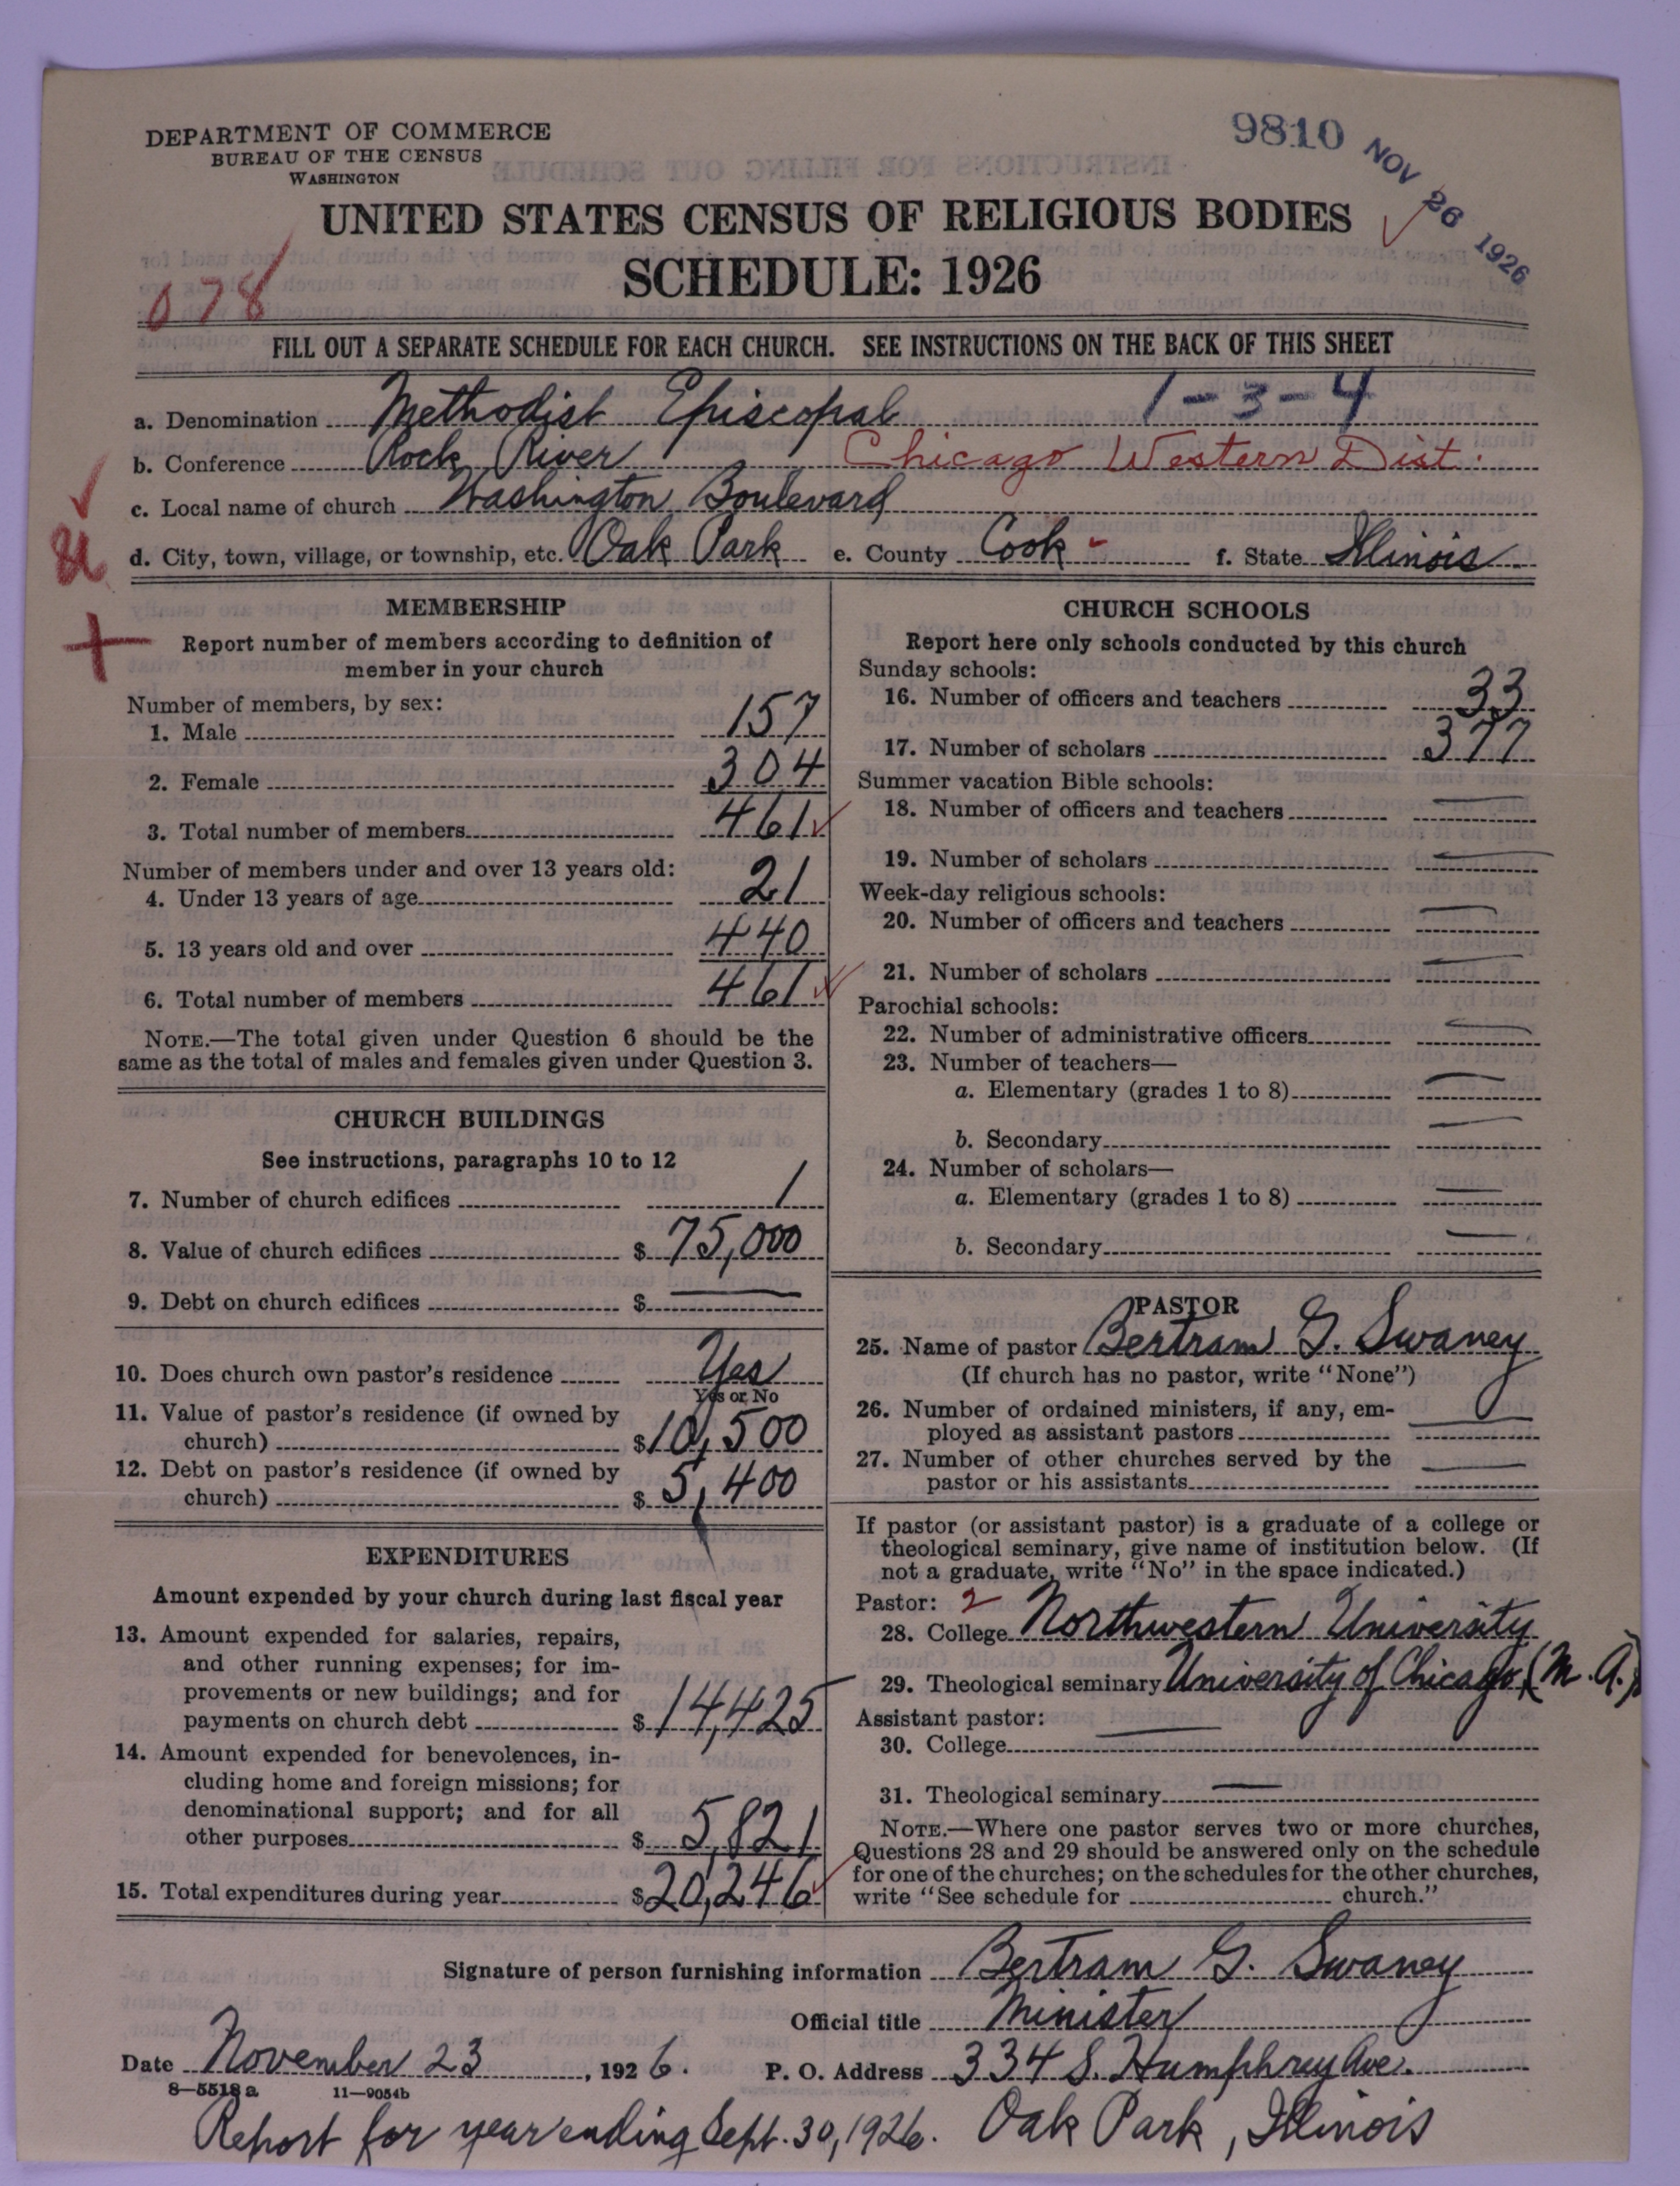 DEPARTMENT OF COMMERCE
BUREAU OF THE CENSUS
WASHINGTON
9810
NOV 26 1926
UNITED STATES CENSUS OF RELIGIOUS BODIES
SCHEDULE: 1926
078
FILL OUT A SEPARATE SCHEDULE FOR EACH CHURCH. SEE INSTRUCTIONS ON THE BACK OF THIS SHEET
a. Denomination Methodist Episcopal 1-3-4
b. Conference Rock River Chicago Western Dist.
c. Local name of church Washington Boulevard
d. City, town, village, or township, etc. Oak Park e. County Cook f. State Illinois
MEMBERSHIP
Report number of members according to definition of
member in your church
Number of members, by sex:
1. Male 157
2. Female 304
3. Total number of members 461
Number of members under and over 13 years old:
4. Under 13 years of age 21
5. 13 years old and over 440
6. Total number of members 461
NOTE.—The total given under Question 6 should be the
same as the total of males and females given under Question 3.
CHURCH BUILDINGS
See instructions, paragraphs 10 to 12
7. Number of church edifices 1
8. Value of church edifices $ 75,000
9. Debt on church edifices $ —
10. Does church own pastor's residence Yes
Yes or No
11. Value of pastor's residence (if owned by
church) $ 10,500
12. Debt on pastor's residence (if owned by
church) $ 5,400
EXPENDITURES
Amount expended by your church during last fiscal year
13. Amount expended for salaries, repairs,
and other running expenses; for im-
provements or new buildings; and for
payments on church debt $ 14,425
14. Amount expended for benevolences, in-
cluding home and foreign missions; for
denominational support; and for all
other purposes $ 5,821
15. Total expenditures during year $ 20,246
CHURCH SCHOOLS
Report here only schools conducted by this church
Sunday schools:
16. Number of officers and teachers 33
17. Number of scholars 377
Summer vacation Bible schools:
18. Number of officers and teachers —
19. Number of scholars —
Week-day religious schools:
20. Number of officers and teachers —
21. Number of scholars —
Parochial schools:
22. Number of administrative officers —
23. Number of teachers—
a. Elementary (grades 1 to 8) —
b. Secondary —
24. Number of scholars—
a. Elementary (grades 1 to 8) —
b. Secondary —
PASTOR
25. Name of pastor Bertram G. Swaney
(If church has no pastor, write "None")
26. Number of ordained ministers, if any, em-
ployed as assistant pastors —
27. Number of other churches served by the
pastor or his assistants —
If pastor (or assistant pastor) is a graduate of a college or
theological seminary, give name of institution below. (If
not a graduate, write "No" in the space indicated.)
Pastor: 2
28. College Northwestern University
29. Theological seminary University of Chicago (M.A.)
Assistant pastor:
30. College —
31. Theological seminary —
NOTE.—Where one pastor serves two or more churches,
Questions 28 and 29 should be answered only on the schedule
for one of the churches; on the schedules for the other churches,
write "See schedule for church."
Signature of person furnishing information Bertram G. Swaney
Official title Minister
Date November 23, 1926. P. O. Address 334 S. Humphrey Ave.
8—5518 a 11—9054b
Report for year ending Sept. 30, 1926. Oak Park, Illinois